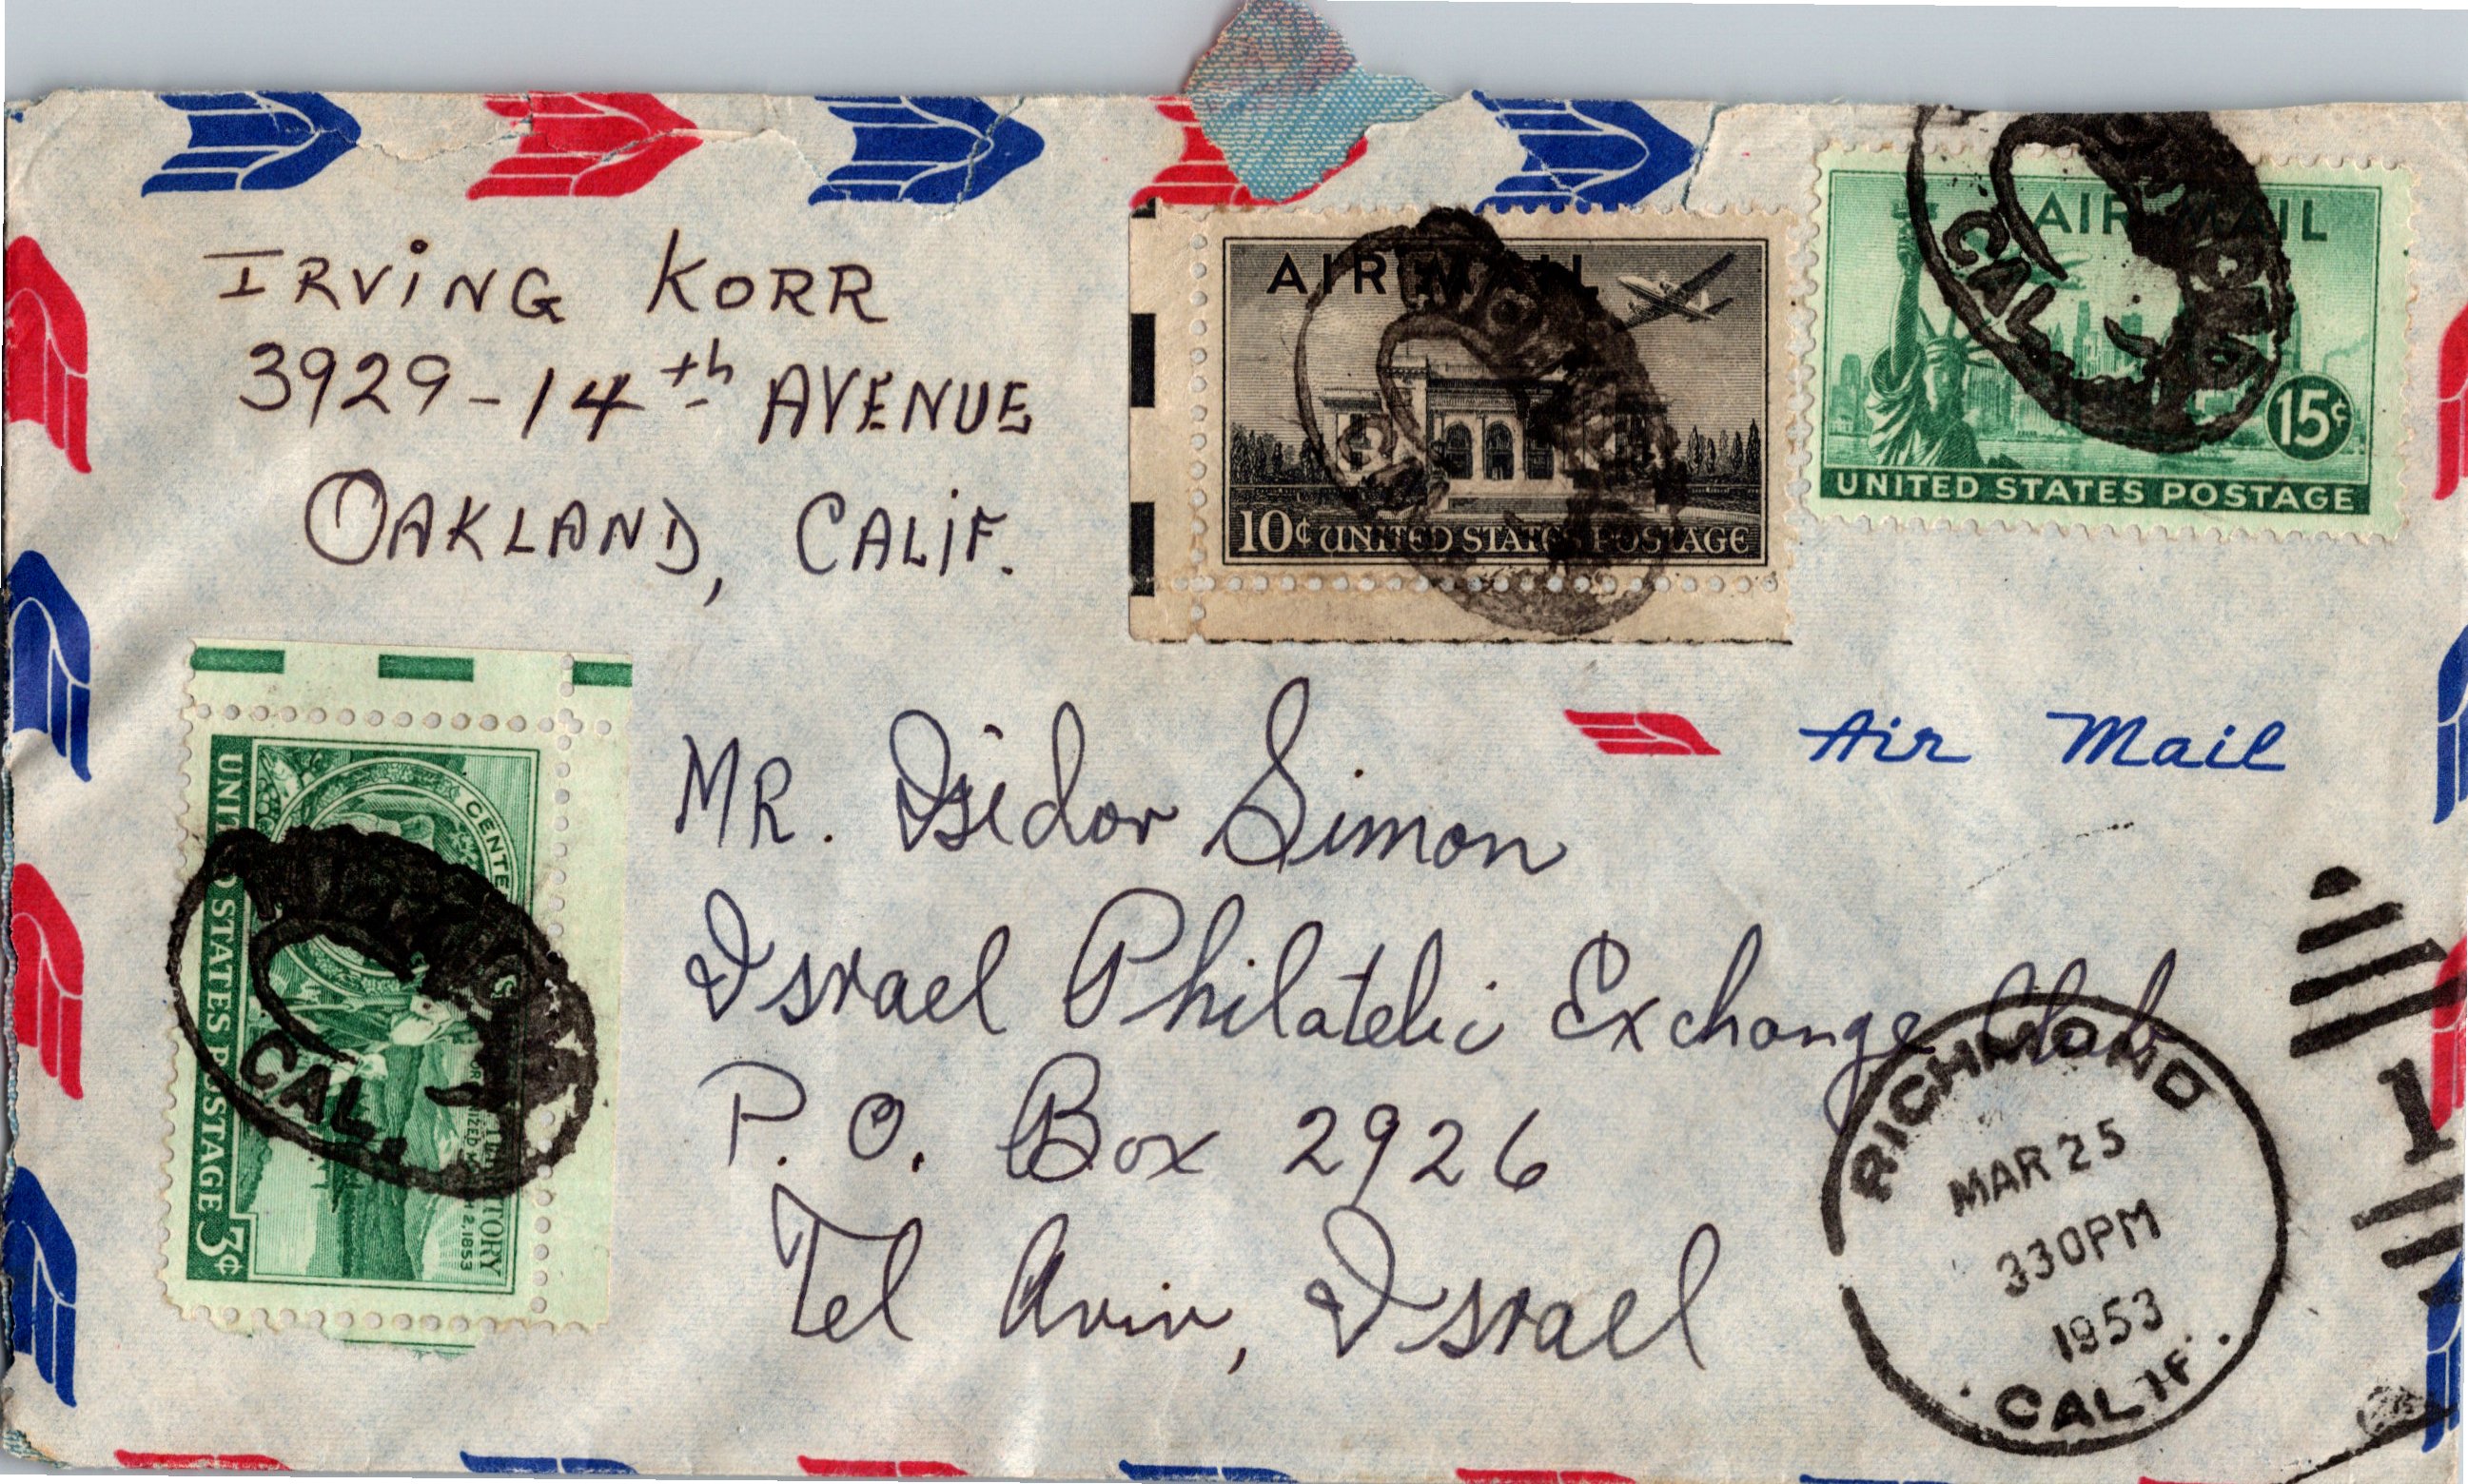 IRVING KORR
3929-14th AVENUE
OAKLAND, CALIF.
AIR MAIL
10¢ UNITED STATES POSTAGE
AIR MAIL
CAL.
15¢
UNITED STATES POSTAGE
Air Mail
MR. Isidor Simon
Israel Philatelic Exchange Club
P. O. Box 2926
Tel Aviv, Israel
UNITED STATES POSTAGE 3¢
CAL.
RICHMOND
MAR 25
330PM
1953
CALIF.
1